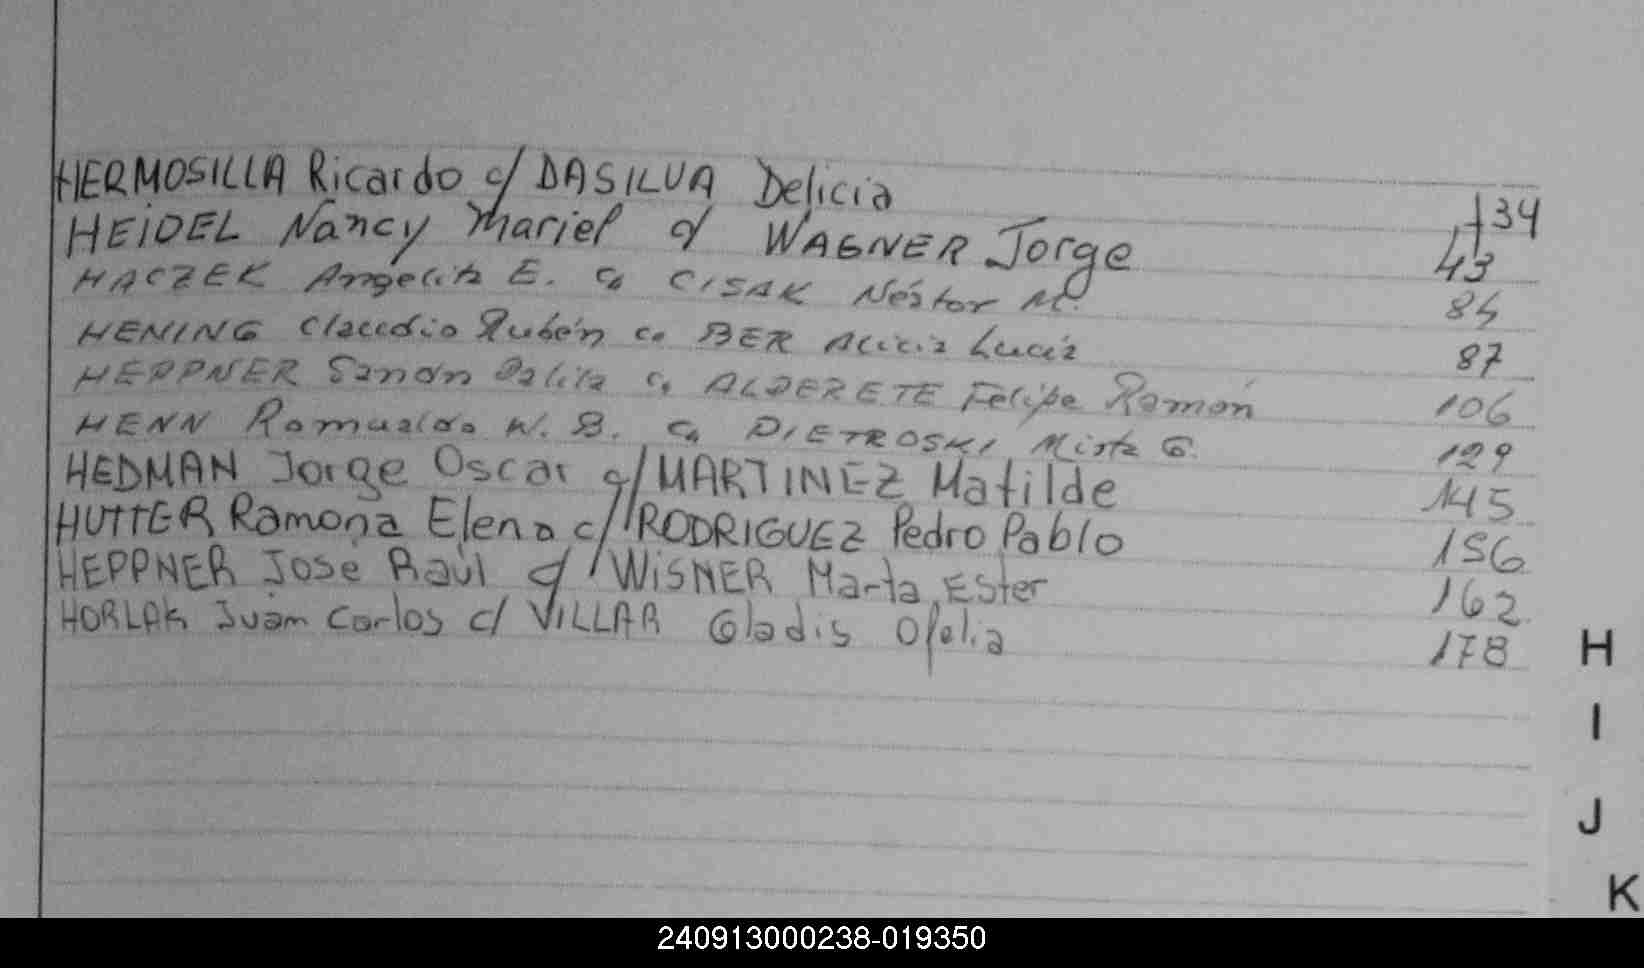 HERMOSILLA Ricardo c/ DASILVA Delicia 34
HEIDEL Nancy Mariel c/ WAGNER Jorge 43
HACZEK Angelita E. c/ CISAK Néstor M. 84
HENING Claudio Rubén c/ BER Alicia Lucía 87
HEPPNER Dalila c/ ALDERETE Felipe Ramón 106
HENN Romualdo W. B. c/ DIETROSKI Mirta G. 129
HEDMAN Jorge Oscar c/ MARTINEZ Matilde 145
HUTTER Ramona Elena c/ RODRIGUEZ Pedro Pablo 156
HEPPNER José Raúl c/ WISNER Marta Ester 162
HORLAK Juan Carlos c/ VILLAR Gladis Ofelia 178
H
I
J
K
240913000238-019350